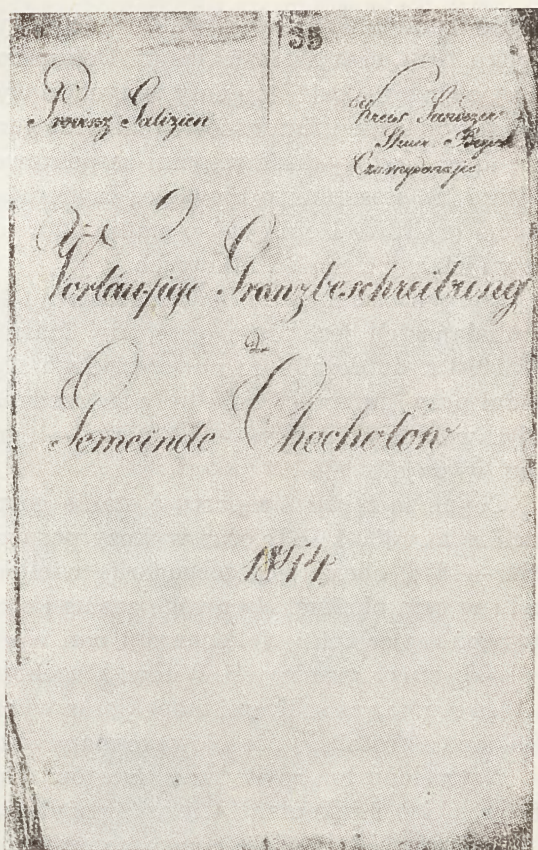 135
Provinz Galizien
Kreis Sandezer
Steuer-Bezirk
Czarnydunajec
Vorläufige Granzbeschreibung
Gemeinde Chocholow
1844